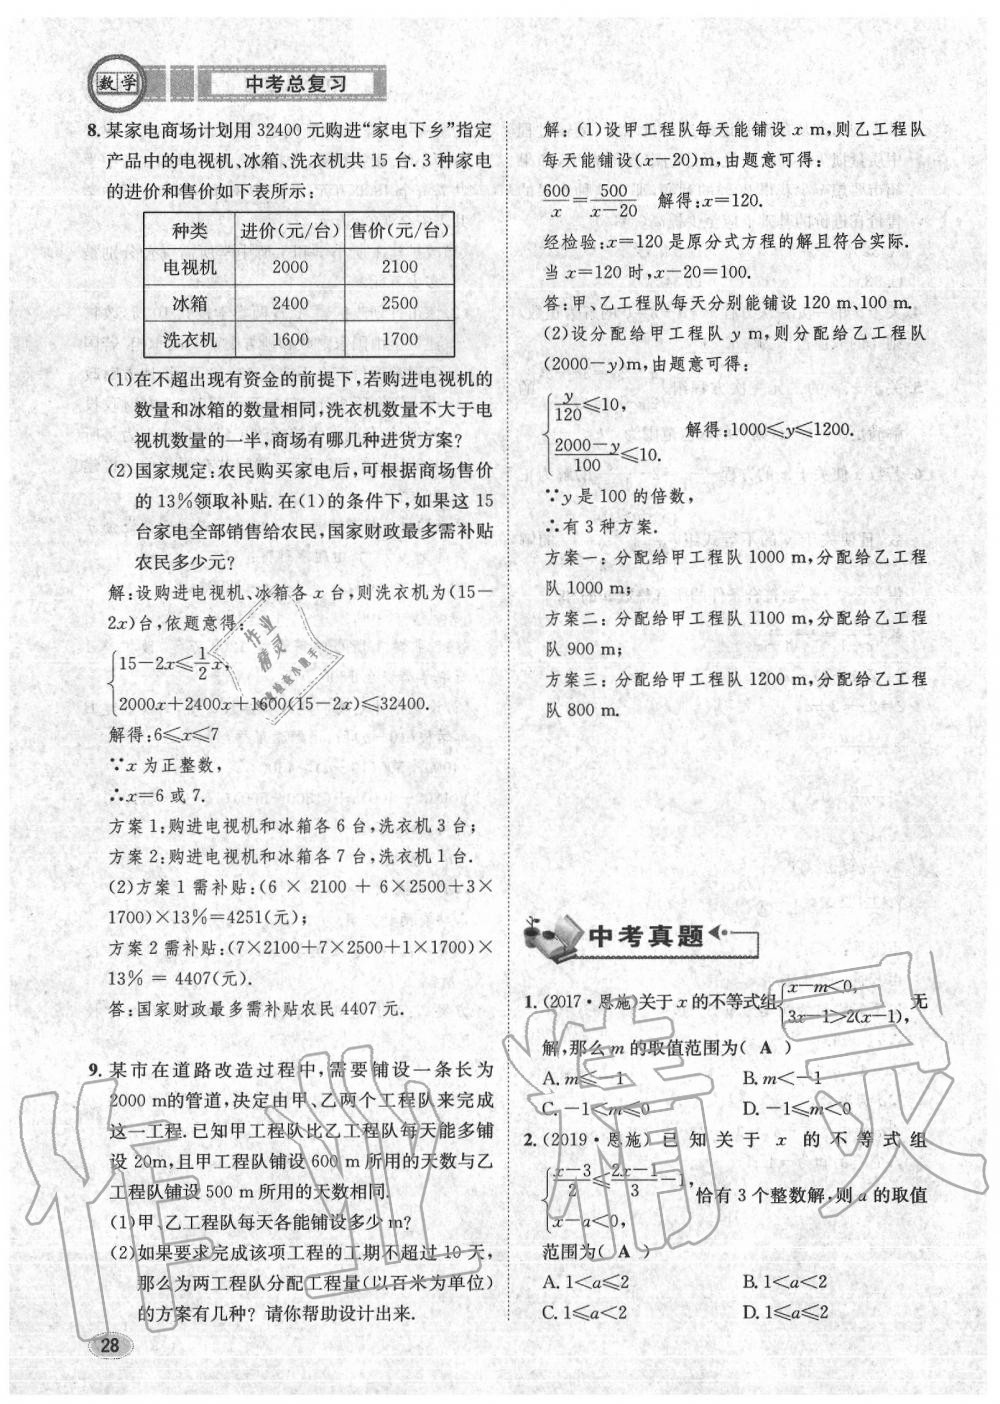 数学
中考总复习
8. 某家电商场计划用 32400 元购进“家电下乡”指定
产品中的电视机、冰箱、洗衣机共 15 台. 3 种家电
的进价和售价如下表所示:
种类 进价(元/台) 售价(元/台)
电视机 2000 2100
冰箱 2400 2500
洗衣机 1600 1700
(1)在不超出现有资金的前提下,若购进电视机的
数量和冰箱的数量相同,洗衣机数量不大于电
视机数量的一半,商场有哪几种进货方案?
(2)国家规定:农民购买家电后,可根据商场售价
的 13%领取补贴. 在(1)的条件下,如果这 15
台家电全部销售给农民,国家财政最多需补贴
农民多少元?
解:设购进电视机、冰箱各 x 台,则洗衣机为(15-
2x)台,依题意得:
{15-2x≤1/2x,
2000x+2400x+1600(15-2x)≤32400.
解得:6≤x≤7
∵x 为正整数,
∴x=6 或 7.
方案 1:购进电视机和冰箱各 6 台,洗衣机 3 台;
方案 2:购进电视机和冰箱各 7 台,洗衣机 1 台.
(2)方案 1 需补贴:(6 × 2100 + 6×2500+3×
1700)×13%=4251(元);
方案 2 需补贴:(7×2100+7×2500+1×1700)×
13% = 4407(元).
答:国家财政最多需补贴农民 4407 元.
9. 某市在道路改造过程中,需要铺设一条长为
2000 m的管道,决定由甲、乙两个工程队来完成
这一工程. 已知甲工程队比乙工程队每天能多铺
设 20m,且甲工程队铺设 600 m 所用的天数与乙
工程队铺设 500 m 所用的天数相同.
(1)甲、乙工程队每天各能铺设多少 m?
(2)如果要求完成该项工程的工期不超过 10 天,
那么为两工程队分配工程量(以百米为单位)
的方案有几种? 请你帮助设计出来.
28
解:(1)设甲工程队每天能铺设 x m,则乙工程队
每天能铺设(x-20)m,由题意可得:
600/x=500/(x-20) 解得:x=120.
经检验:x=120 是原分式方程的解且符合实际.
当 x=120 时,x-20=100.
答:甲、乙工程队每天分别能铺设 120 m、100 m.
(2)设分配给甲工程队 y m,则分配给乙工程队
(2000-y)m,由题意可得:
{y/120≤10,
(2000-y)/100≤10. 解得:1000≤y≤1200.
∵y 是 100 的倍数,
∴有 3 种方案.
方案一:分配给甲工程队 1000 m,分配给乙工程
队 1000 m;
方案二:分配给甲工程队 1100 m,分配给乙工程
队 900 m;
方案三:分配给甲工程队 1200 m,分配给乙工程
队 800 m.
中考真题
1. (2017·恩施)关于 x 的不等式组{x-m<0, 3x-1>2(x-1), 无
解,那么 m 的取值范围为( A )
A. m≤-1 B. m<-1
C. -1<m≤0 D. -1≤m<0
2. (2019·恩施)已知关于 x 的不等式组
{(x-3)/2≤(2x-1)/3-1, x-a<0, 恰有 3 个整数解,则 a 的取值
范围为( A )
A. 1<a≤2 B. 1<a<2
C. 1≤a<2 D. 1≤a≤2
作业精灵
作业
精灵